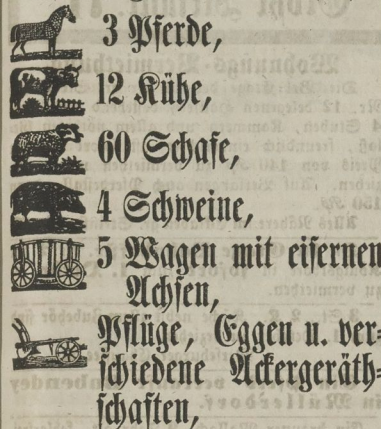 3 Pferde,
12 Kühe,
60 Schafe,
4 Schweine,
5 Wagen mit eisernen
Achsen,
Pflüge, Eggen u. ver=
schiedene Ackergeräth=
schaften,